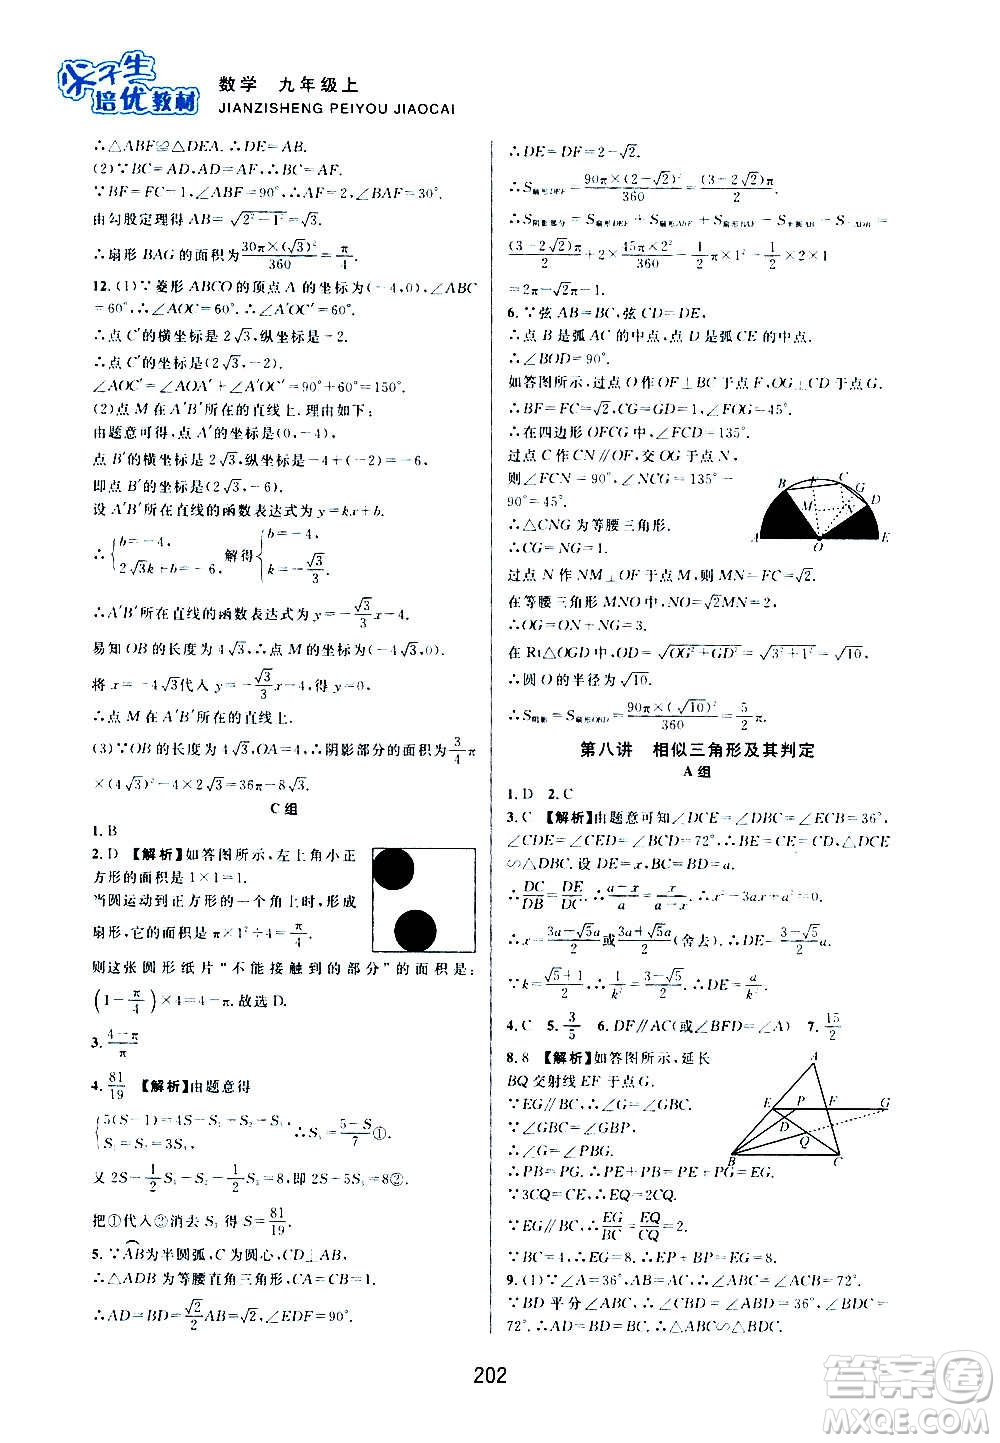 尖子生
培优教材
数学 九年级上
JIANZISHENG PEIYOU JIAOCAI
∴△ABF≌△DEA.∴DE=AB.
(2)∵BC=AD,AD=AF,∴BC=AF.
∵BF=FC=1,∠ABF=90°,∴AF=2,∠BAF=30°.
由勾股定理得 AB=√(2²-1²)=√3.
∴扇形 BAG 的面积=30π×(√3)²/360=π/4.
12.(1)∵菱形 ABCO 的顶点 A 的坐标为(-4,0),∠ABC
=60°,∴∠AOC=60°.∴∠A′OC′=60°.
∴点 C′的横坐标是 2√3,纵坐标是-2.
∴点 C′的坐标是(2√3,-2).
∠AOC′=∠AOA′+∠A′OC′=90°+60°=150°.
(2)点 M 在 A′B′所在的直线上.理由如下:
由题意可得,点 A′的坐标是(0,-4),
点 B′的横坐标是2√3,纵坐标是-4+(-2)=-6,
即点 B′的坐标是(2√3,-6).
设 A′B′所在直线的函数表达式为 y=kx+b.
∴{b=-4, 2√3k+b=-6, 解得{b=-4, k=-√3/3.
∴A′B′所在直线的函数表达式为 y=-√3/3x-4.
易知 OB 的长度为 4√3,∴点 M 的坐标是(-4√3,0).
将 x=-4√3代入 y=-√3/3x-4,得 y=0.
∴点 M 在 A′B′所在的直线上.
(3)∵OB 的长度为 4√3,OA=4,∴阴影部分的面积=3/4π
×(4√3)²-3/4π×4²=36π-12π=24π.
C 组
1. B
2. D 【解析】如答图所示,左上角小正
方形的面积是 1×1=1.
当圆运动到正方形的一个角上时,形成
扇形,它的面积是 π×1²÷4=π/4.
则这张圆形纸片“不能接触到的部分”的面积是:
(1-π/4)×4=4-π.故选 D.
3. (4-π)/π
4. 81/19 【解析】由题意得
{5(S-1)=4S-S₁-S₂+S₃ ∴S₁=(5-S)/7①.
又 2S-1/2S₁-S₁-1/2S₁=8,即 2S-5S₁=8②.
把①代入②消去 S₁ 得 S=81/19.
5. ∵AB为半圆弧,C 为圆心,CD⊥AB,
∴△ADB 为等腰直角三角形,CA=CB=1.
∴AD=BD=√2/2AB=√2,∠EDF=90°.
∴DE=DF=2-√2.
∴S扇形DEF=90π×(2-√2)²/360=(3-2√2)π/2.
∴S阴影部分=S扇形DEF+S扇形ABF+S扇形BAD-S半圆AB-S△ABD=
(3-2√2)π/2+2×45π×2²/360-1/2×π×1²-1/2×2×1
=2π-√2π-1.
6. ∵弦 AB=BC,弦 CD=DE,
∴点 B 是弧 AC 的中点,点 D 是弧 CE 的中点.
∴∠BOD=90°.
如答图所示,过点 O 作 OF⊥BC 于点 F,OG⊥CD 于点 G.
∴BF=FC=√2,CG=GD=1,∠FOG=45°.
∴在四边形 OFCG 中,∠FCD=135°.
过点 C 作 CN∥OF,交 OG 于点 N,
则∠FCN=90°,∠NCG=135°-
90°=45°.
∴△CNG 为等腰三角形.
∴CG=NG=1.
过点 N 作 NM⊥OF 于点 M,则 MN=FC=√2.
在等腰三角形 MNO 中,NO=√2MN=2,
∴OG=ON+NG=3.
在 Rt△OGD 中,OD=√(OG²+GD²)=√(3²+1²)=√10,
∴圆 O 的半径为√10.
∴S阴影=S扇形OBD=90π×(√10)²/360=5/2π.
A B F C G D E M N O
第八讲 相似三角形及其判定
A 组
1. D 2. C
3. C 【解析】由题意可知∠DCE=∠DBC=∠ECB=36°,
∠CDE=∠CED=∠BCD=72°.∴BE=CE=CD,△DCE
∽△DBC.设 DE=x,BE=CE=CD=a.
∴DC/DB=DE/DC.∴a/(x+a)=x/a.∴x²-3ax+a²=0.
∴x=(3a-√5a)/2或(3a+√5a)/2(舍去).∴DE=(3-√5)/2a.
∵k=(√5+1)/2,∴1/k²=(3-√5)/2.∴DE=a/k².
4. C 5. 3/5 6. DF∥AC(或∠BFD=∠A) 7. 15/2
8. 8 【解析】如答图所示,延长
BQ 交射线 EF 于点 G.
∵EG∥BC,∴∠G=∠GBC.
∵∠GBC=∠GBP,
∴∠G=∠PBG.
∴PB=PG.∴PE+PB=PE+PG=EG.
∵3CQ=CE,∴EQ=2CQ.
∵EG∥BC,∴EG/BC=EQ/CQ=2.
∵BC=4,∴EG=8.∴EP+BP=8.
A E P F G D Q B C
9. (1)∵∠A=36°,AB=AC,∴∠ABC=∠ACB=72°.
∵BD 平分∠ABC,∴∠CBD=∠ABD=36°,∠BDC=
72°.∴BD=AD=BC.∴△ABC∽△BDC.
202
答案圈
MXQE.COM